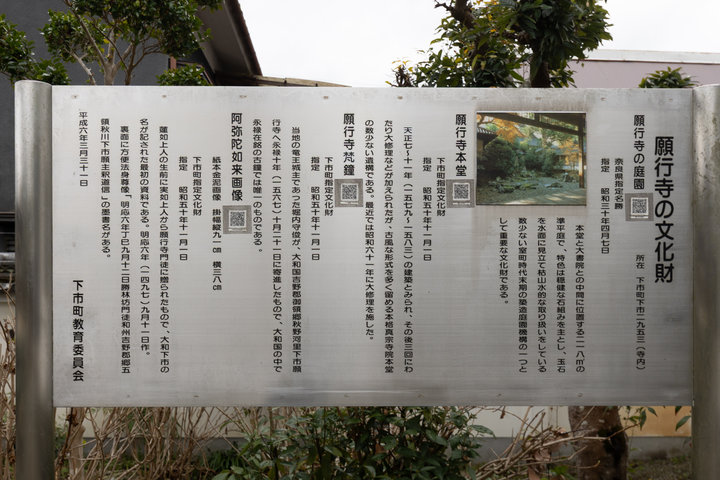 願行寺の文化財
願行寺の庭園　所在　下市町下市二九五三（寺内）
奈良県指定名勝
指定　昭和三十年四月七日
本堂と大書院との中間に位置する二一八㎡の
準平庭で、特色は穏健な石組みを主とし、玉石
を水面に見立て枯山水的な取り扱いをしている
数少ない室町時代末期の築造庭園機構の一つと
して重要な文化財である。
願行寺本堂
下市町指定文化財
指定　昭和五十年十一月一日
天正七～十一年（一五七九～一五八三）の建築とみられ、その後三回にわ
たり大修理などが加えられたが、古風な形式を多く留める本格真宗寺院本堂
の数少ない遺構である。最近では昭和六十一年に大修理を施した。
願行寺梵鐘
下市町指定文化財
指定　昭和五十年十一月一日
当地の竜王城主であった堀内守俊が、大和国吉野郡御領郷秋野河里下市願
行寺へ永禄十年（一五六七）十月二十一日に寄進したもので、大和国の中で
永禄在銘の古鐘では唯一のものである。
阿弥陀如来画像
紙本金泥画像　掛幅縦九一㎝　横三八㎝
下市町指定文化財
指定　昭和五十年十一月一日
蓮如上人の生前に実如上人から願行寺門徒に贈られたもので、大和下市の
名が記された最初の資料である。明応六年（一四九七）九月十一日作。
裏面に「方便法身尊像「明応六年丁巳九月十二日勝林坊門徒和州吉野郡郷五
領秋川下市願主釈道信」の墨書名がある。
平成六年三月三十一日
下市町教育委員会